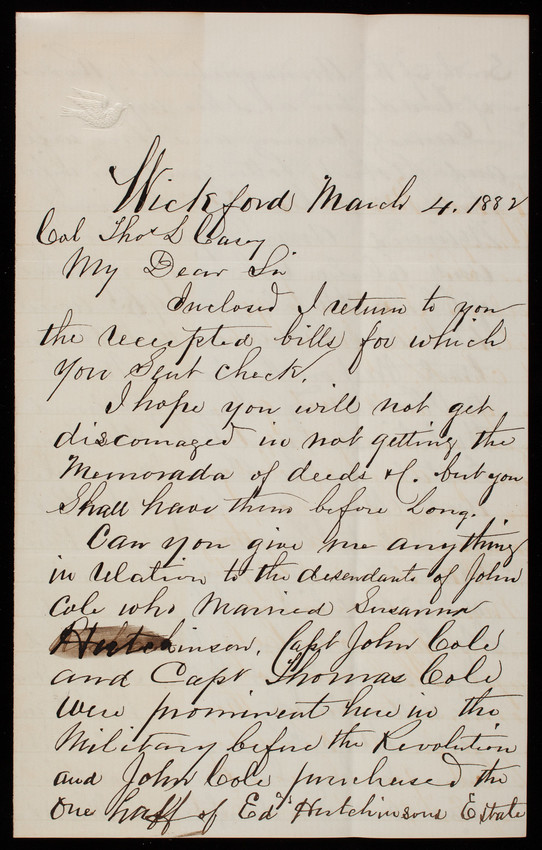 Wickford March 4. 1882
Col Thos L Casey
My Dear Sir
Inclosed I return to you
the receipted bills for which
you Sent check.
I hope you will not get
discouraged in not getting the
Memorada of deeds &C. but you
Shall have them before Long.
Can you give me anything
in relation to the desendants of John
Cole who Married Susanna
Hutchinson. Capt John Cole
and Capt Thomas Cole
were prominent here in the
Military before the Revolution
and John Cole purchased the
One half of Edd Hutchinsons Estate